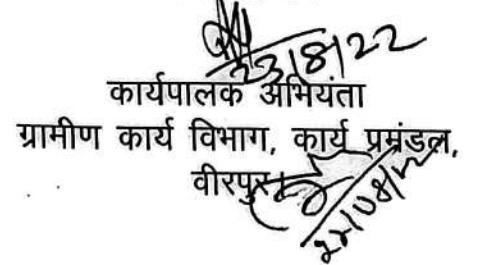 23/8/22
कार्यपालक अभियंता
ग्रामीण कार्य विभाग, कार्य प्रमंडल,
वीरपुर।
22/08/22